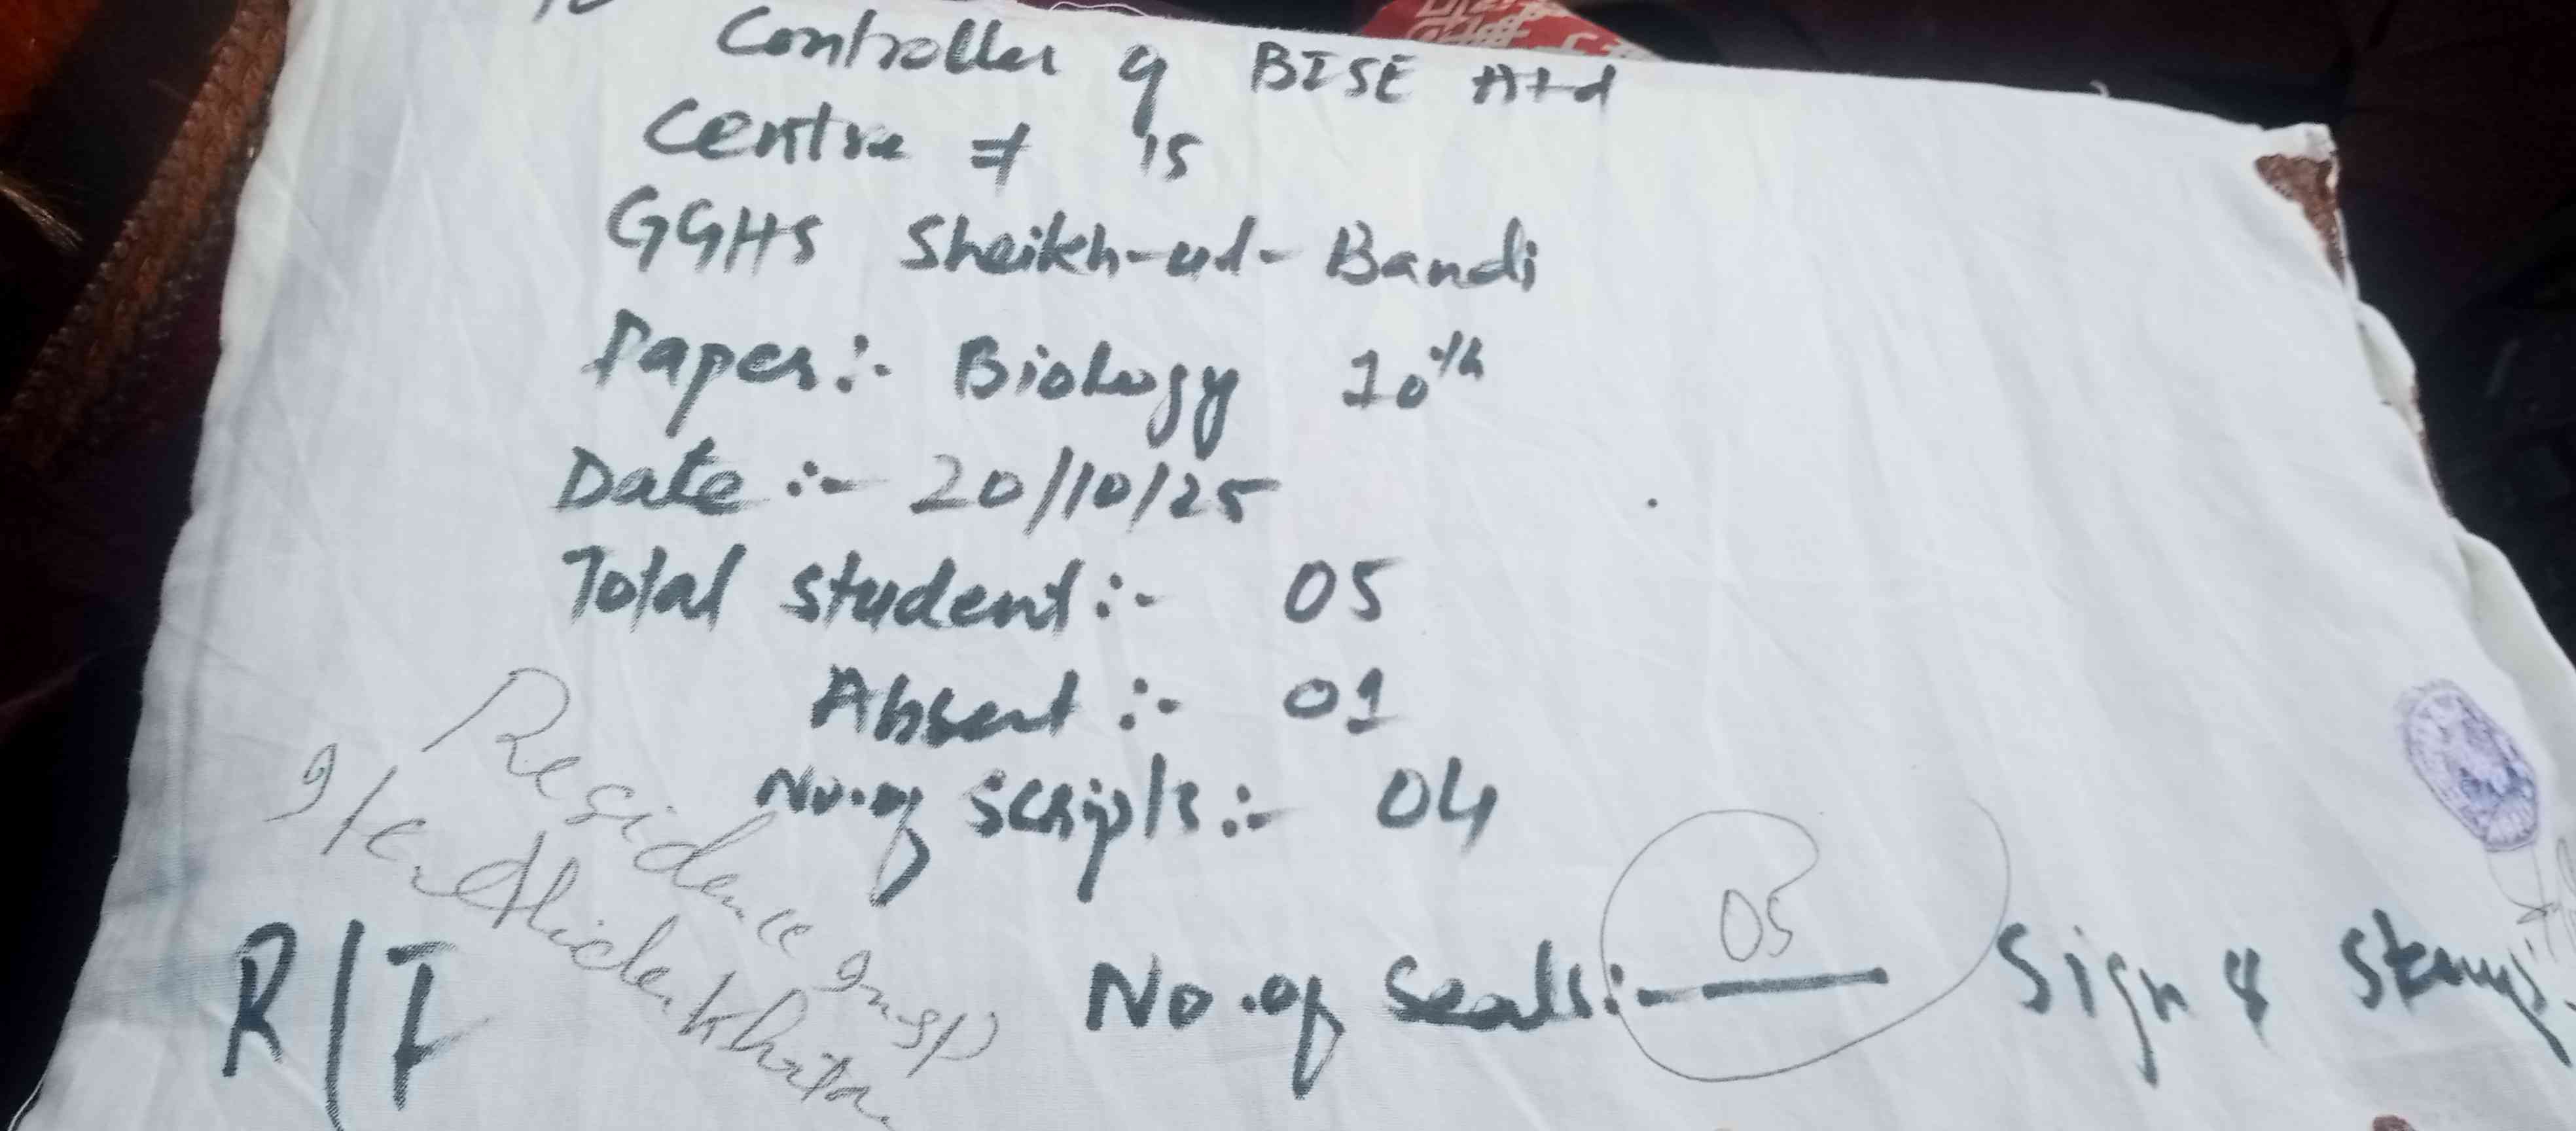 To
Controller of BISE Atd
Centre # 15
GGHS Sheikh-ul-Bandi
Paper:- Biology 10th
Date :- 20/10/25
Total student:- 05
Absent :- 01
No. of scripts:- 04
Residence Insp
R/I No. of Seals:- 05 Sign & Stamp